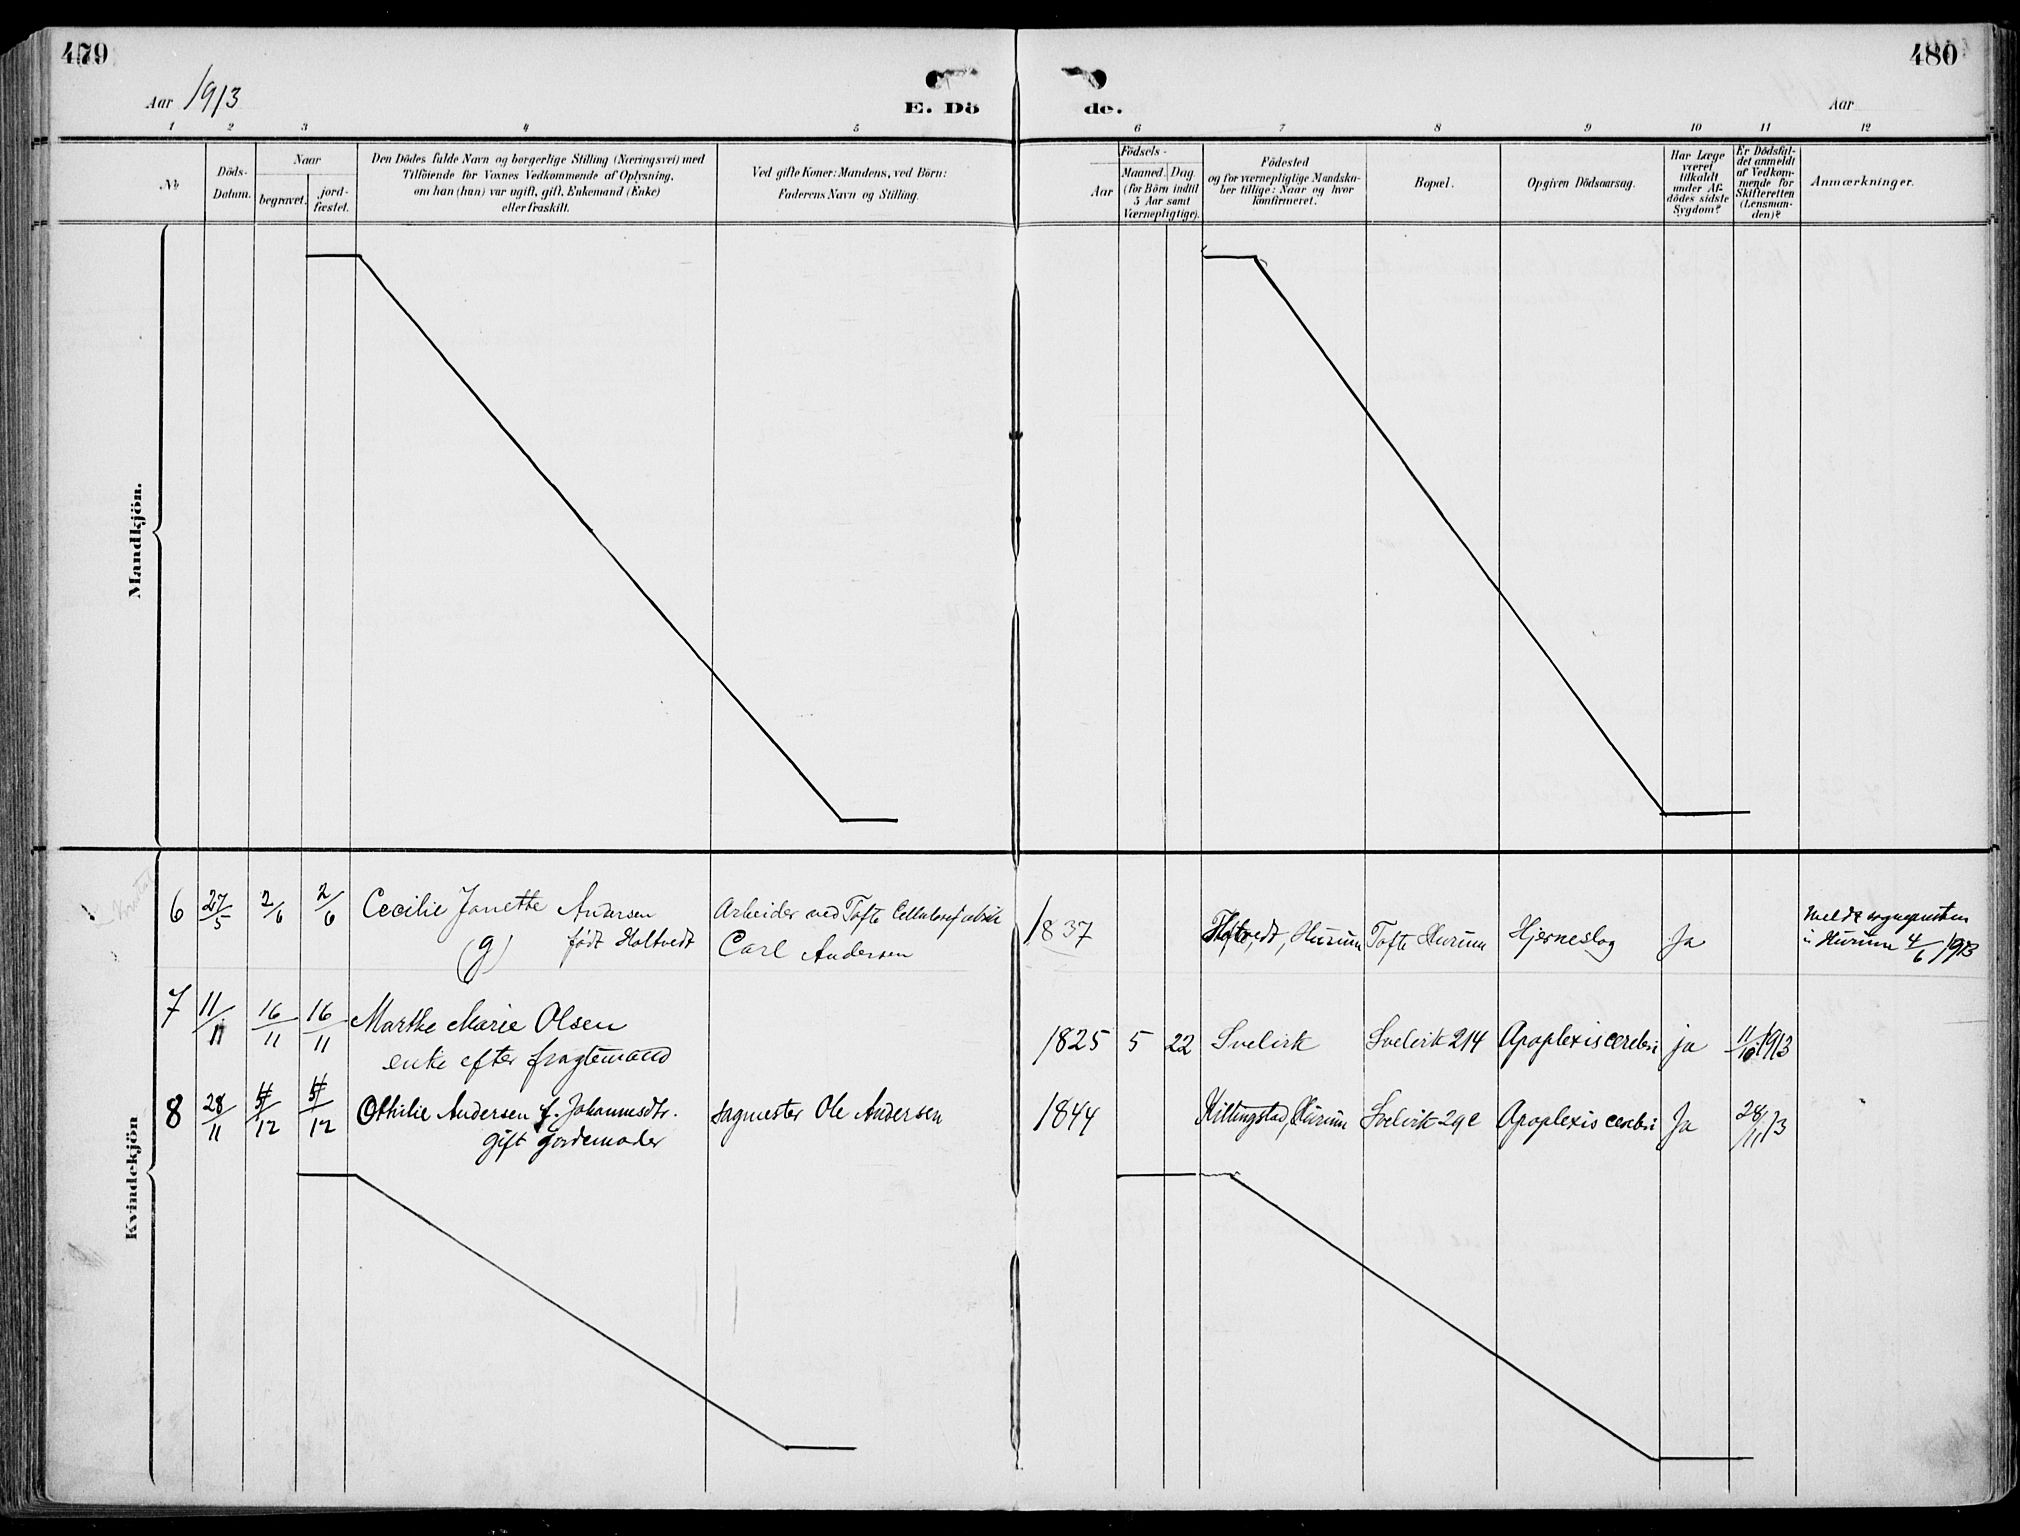 479
480
Aar 1913
E. Dö de.
Aar
1 2 3 4 5 6 7 8 9 10 11 12
No
Döds-
Datum.
Naar
begravet.
jord-
fæstet.
Den Dödes fulde Navn og borgerlige Stilling (Næringsvei) med
Tilföiende for Voxnes Vedkommende af Oplysning,
om han (hun) var ugift, gift, Enkemand (Enke)
eller fraskilt.
Ved gifte Koner: Mandens, ved Börn:
Faderens Navn og Stilling.
Födsels-
Aar
Maaned. Dag
(for Börn indtil
5 Aar samt
Værnepligtige).
Födested
og for værnepligtige Mandska-
ber tillige: Naar og hvor
konfirmeret.
Bopæl.
Opgiven Dödsaarsag.
Har Læge
været
tilkaldt
under Af-
dödes sidste
Sygdom?
Er Dödsfal-
det anmeldt
af Vedkom-
mende for
Skifteretten
(Lensman-
den)?
Anmærkninger.
Mandkjön.
Kvindekjön
6 27/5 2/6 2/6 Cecilie Janette Andersen
(g) født Holtvedt
Arbeider ved Tofte Cellulosefabrik
Carl Andersen
1837 Holtvedt, Hurum Tofte Hurum Hjerneslag Ja
Meldt sognepresten
i Hurum 4/6 1913
7 11/11 16/11 16/11 Marthe Marie Olsen
enke efter fragtemand
1825 5 22 Svelvik Svelvik 214 Apoplexis cerebri ja 11/10 1913
8 28/11 5/12 5/12 Othilie Andersen f. Johannesdtr.
gift Jordemoder
Sagmester Ole Andersen
1844 Killingstad, Hurum Svelvik 29c Apoplexis cerebri Ja 28/11 13